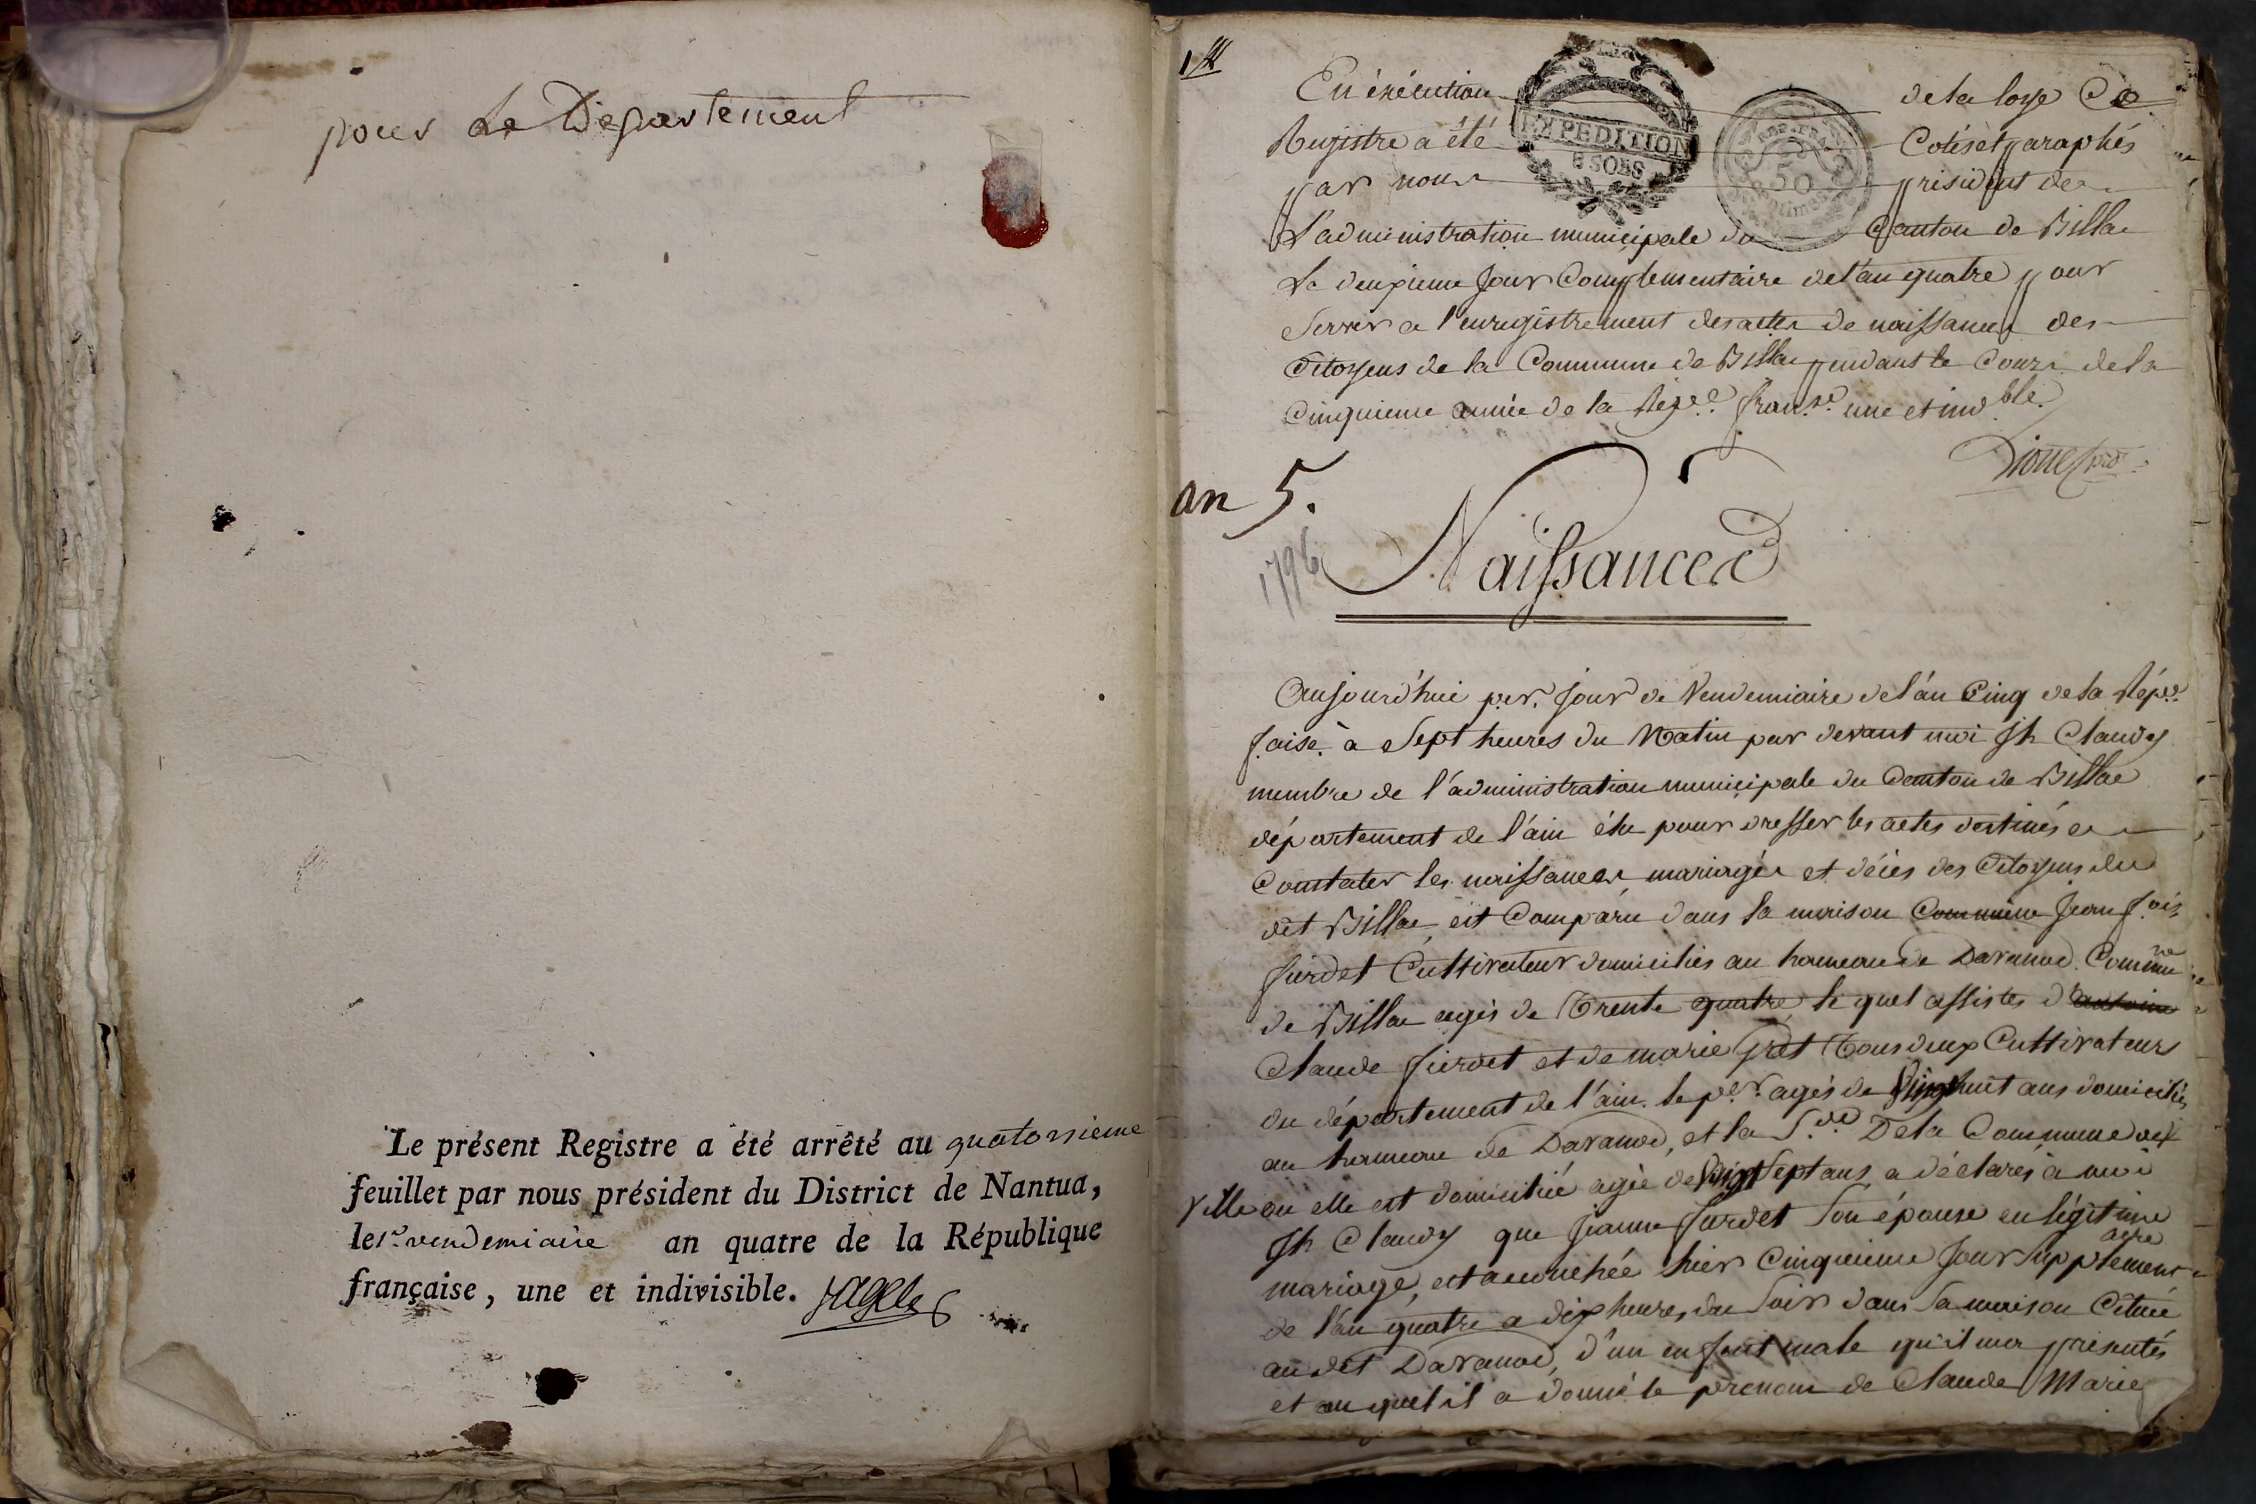 pour Le Departement
Le présent Registre a été arrêté au quatorsieme
feuillet par nous président du District de Nantua,
le 1.er vendemiaire an quatre de la République
française, une et indivisible.
En éxécution de la loye Ce
EXPEDITION
8 SOLS
REP. FRANC
50
Registre a été Cotés et paraphés
par nous président de
L'administration municipale du Canton de Billa
Le deuxieme Jour Complementaire de l'an quatre pour
Servir a l'enregistrement des actes de naissances des
Citoyens de la Commune de Billa pendant le Cours de la
Cinquieme année de la Rép.e fran.se une et ind.ble
an 5.
1796
Naissances
Aujourd'hui p.er Jour de Vendemiaire de l'an Cinq de la Rép.e
f.aise à Sept heures du Matin par devant moi Jh Claudy
membre de l'administration municipale du Canton de Billae
département de l'ain élu pour dresser les actes destinés a
Constater les naissances, mariages et décès des Citoyens du
dit Billae, est Comparu dans la maison Commune Jean f.ois
furdet Cultivateur domiciliés au hameau de Daranod Commune
de Billae agés de Trente quatre, le quel assistés d'antoine
Claude furdet et de marie Tous deux Cultivateurs
du département de l'ain. le p.er agés de Vingthuit ans domiciliés
au hameau de Daranod, et la S.de De la Commune de
Ville ou elle est domiciliée agée de Vingt Sept ans a déclarés à moi
Jh Claudy que Jeanne furdet Son épouse en légitime
mariage, est accouchée hier Cinquieme Jour Supplementaire
de l'an quatre a dix heures du Soir dans Sa maison Cituée
au dit Daranod, d'un enfant male qu'il ma présentés
et au quel il a donné le prenom de Claude Marie